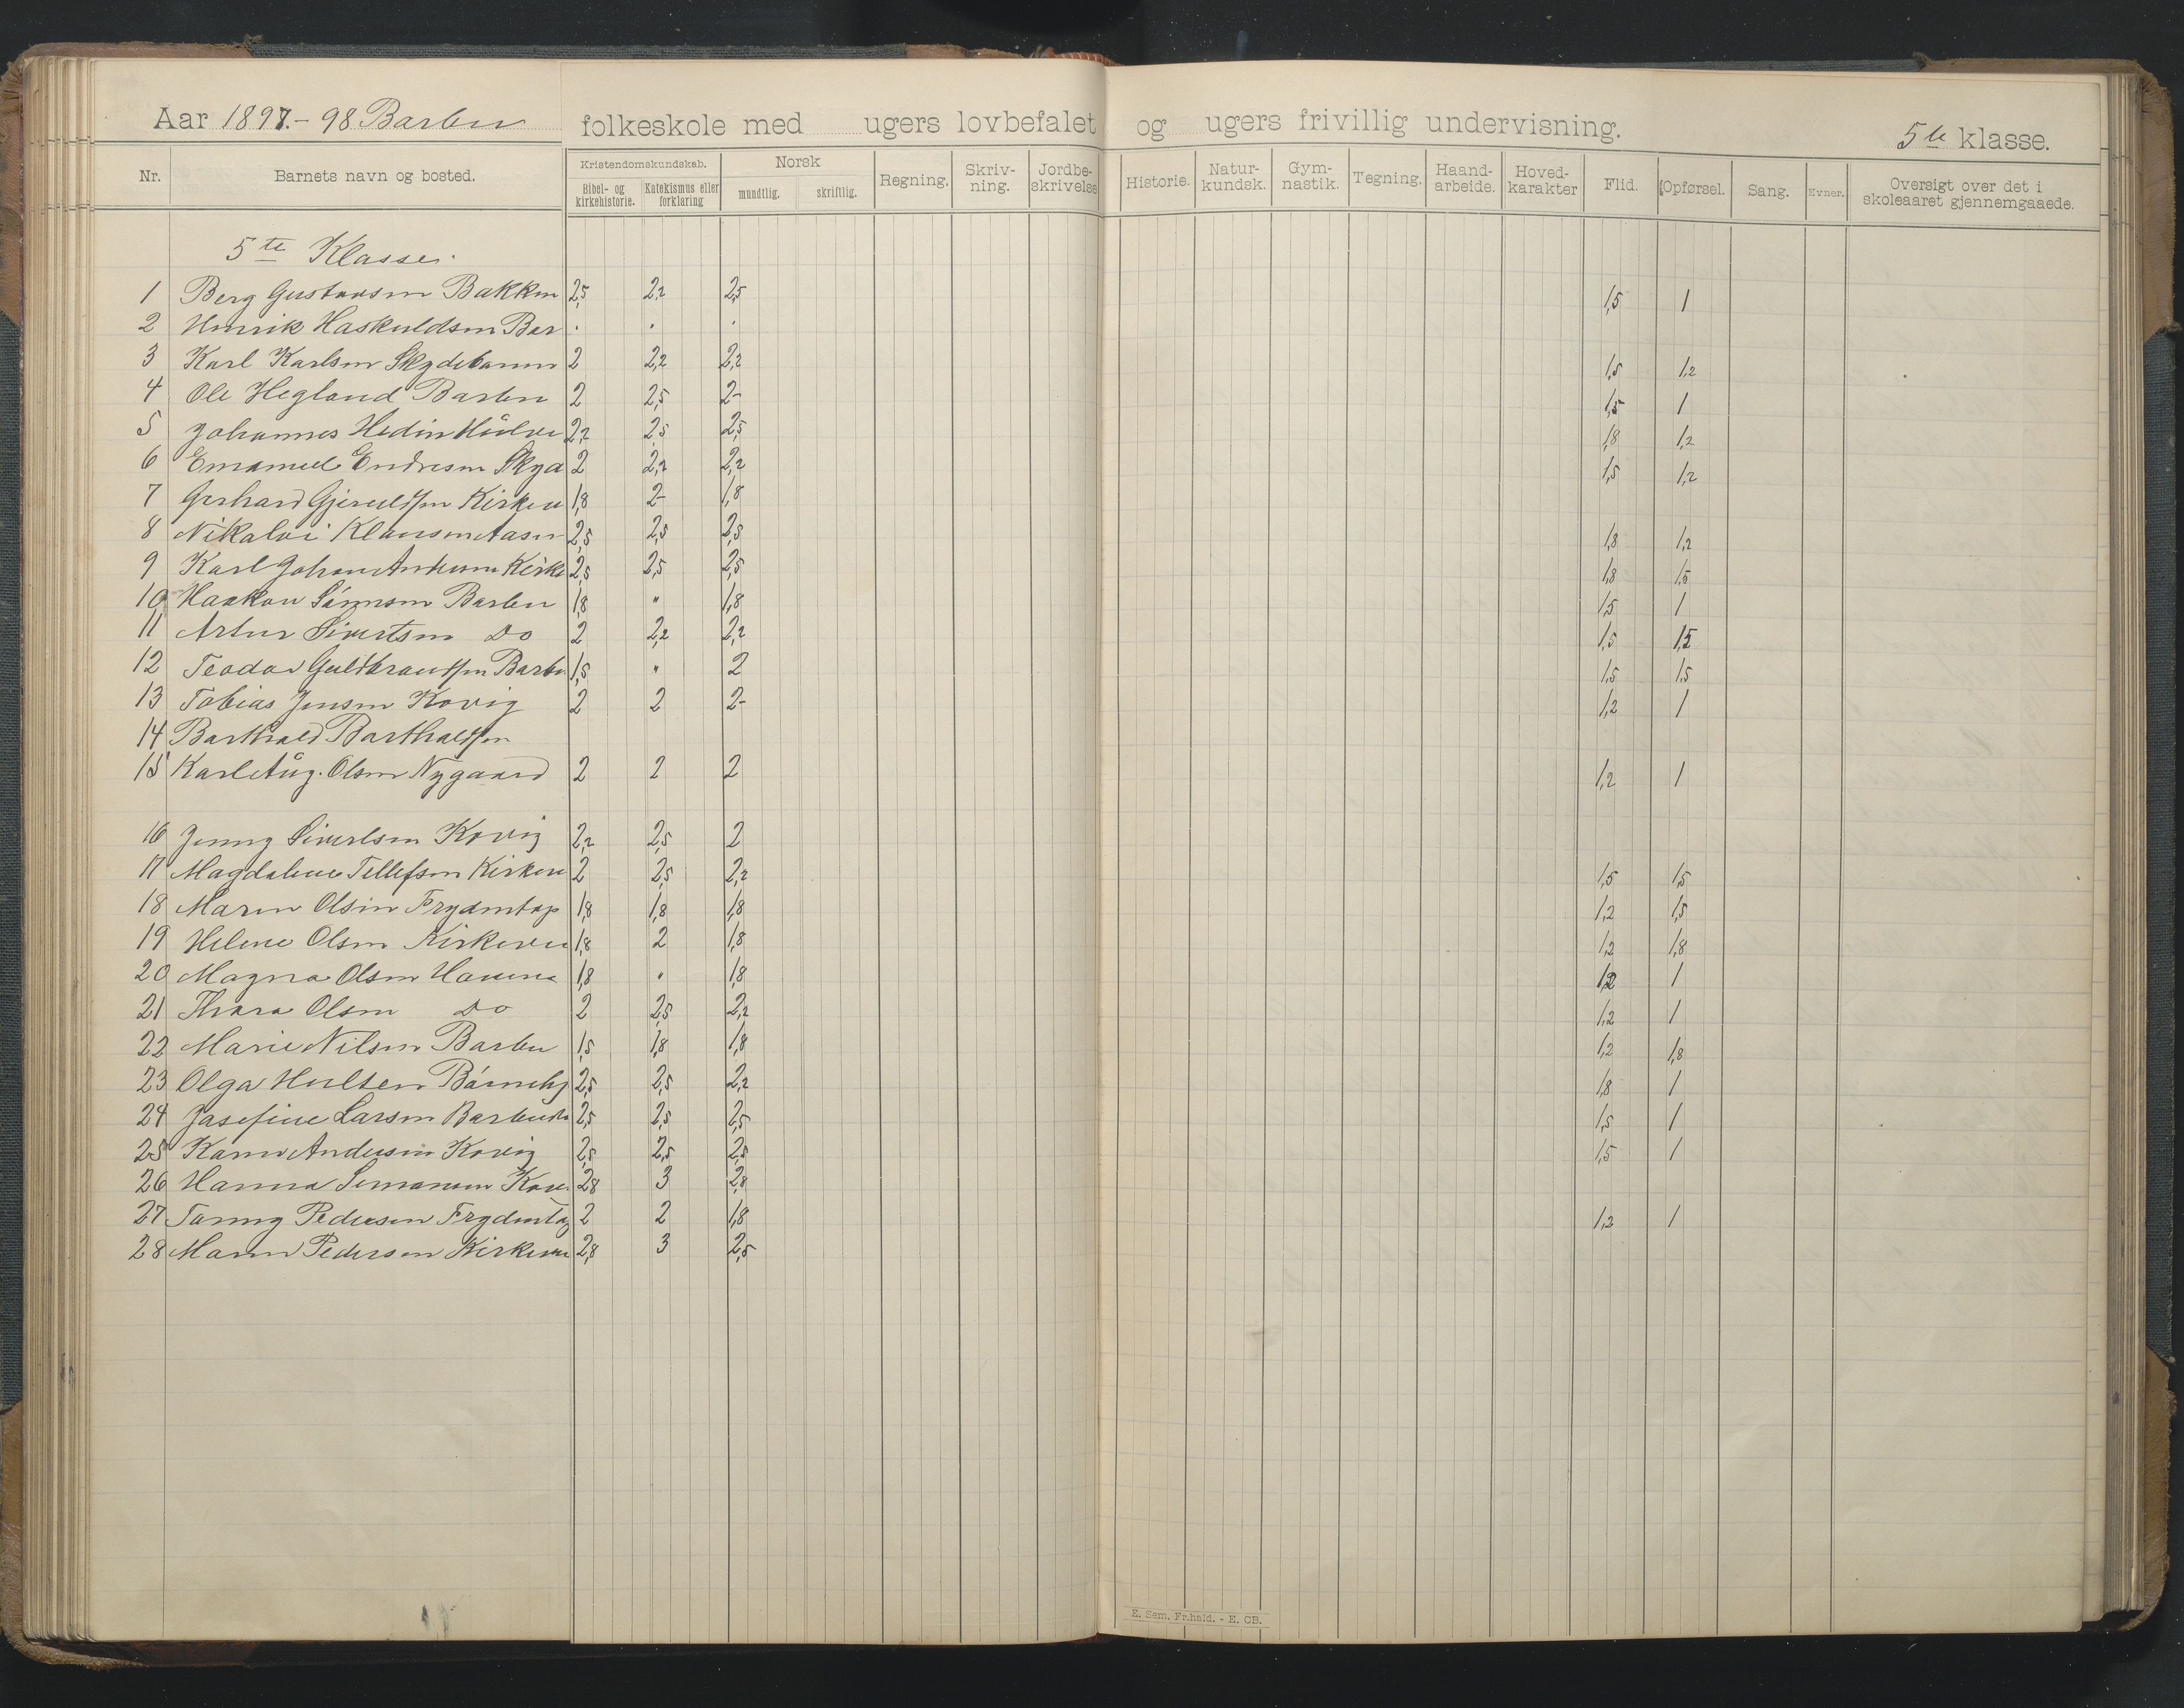 Aar 1897.-98 Barbu folkeskole med ugers lovbefalet og ugers frivillig undervisning. 5te klasse.
Nr. Barnets navn og bosted. Kristendomskundskab. Bibel- og kirkehistorie. Katekismus eller forklaring Norsk mundtlig. skriftlig. Regning. Skriv-ning. Jordbe-skrivelse Historie. Natur-kundsk. Gym-nastik. Tegning. Haand-arbeide. Hoved-karakter Flid. Opførsel. Sang. Evner. Oversigt over det i skoleaaret gjennemgaaede.
5te Klasse.
1 Berg Gustavsen Bakken 2,5 2,2 2,5 1,5 1
2 Henrik Haskuldsen Bar . . .
3 Karl Karlsen 2 2,2 2,2 1,5 1,2
4 Ole Hegland Barbu 2 2,5 2- 1,5 1
5 Johannes Hedin 2,2 2,5 2,5 1,8 1,2
6 Emanuel Endresen Skyd 2 2,2 2,2 1,5 1,2
7 Gerhard Gjeruldsen Kirkev 1,8 2- 1,8
8 Nikolai Klausen 2,5 2,5 2,5 1,8 1,2
9 Karl Johan Andersen Kirke 2,5 2,5 2,5 1,8 1,5
10 Haakon Sørensen Barbu 1,8 " 1,8 1,5 1
11 Artur Sivertsen Do 2 2,2 2,2 1,5 1,5
12 Teodor Guldbrandsen Barbu 1,5 " 2 1,5 1,5
13 Tobias Jensen Kovig 2 2 2- 1,2 1
14 Barthold Bartholdsen
15 Karl Aug. Olsen Nygaard 2 2 2 1,2 1
16 Jenny Sivertsen Kovig 2,2 2,5 2
17 Magdalene Tellefsen Kirkev 2 2,5 2,2 1,5 1,5
18 Maren Olsen Frydentop 1,8 1,8 1,8 1,2 1,5
19 Helene Olsen Kirkevei 1,8 2 1,8 1,2 1,8
20 Magna Olsen 1,8 " 1,8 1,2 1
21 Thora Olsen Do 2 2,5 2,2 1,2 1
22 Marie Nilsen Barbu 1,5 1,8 1,8 1,2 1,8
23 Olga Hulten 2,5 2,5 2,2 1,8 1
24 Josefine Larsen 2,5 2,5 2,5 1,5 1
25 Karen Andersen Kovig 2,5 2,5 2,5 1,5 1
26 Hanna Simonsen Kov. 2,8 3 2,8
27 Fanny Pedersen Frydentop 2 2 1,8 1,2 1
28 Maren Pedersen Kirkevei 2,8 3 2,5
E. Sem. Fr.hald. - E. CB.